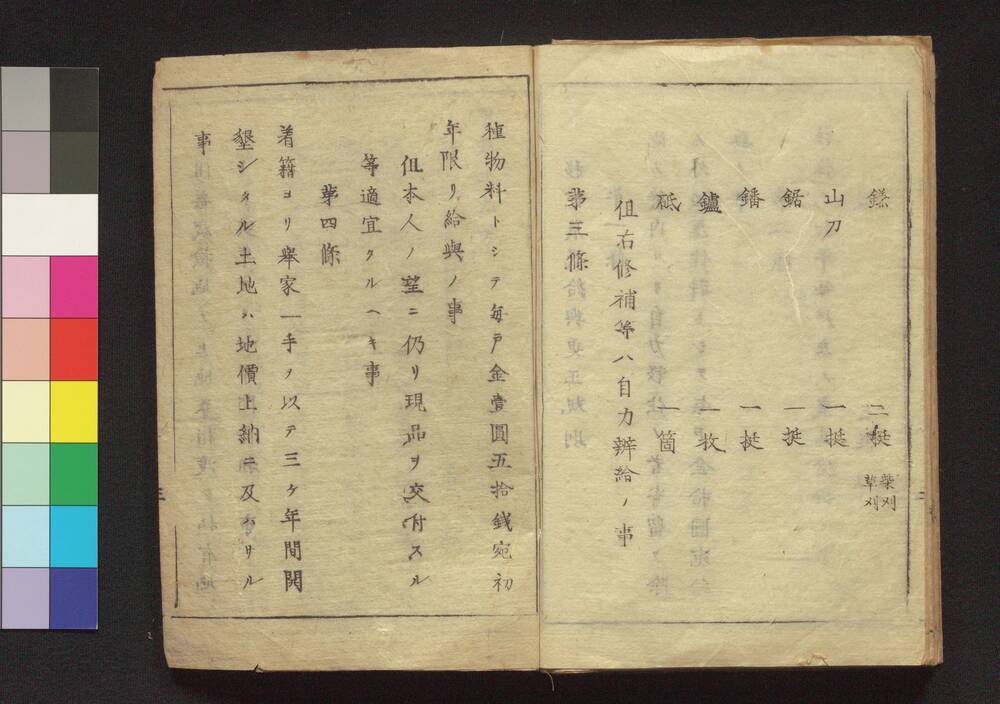 鎌 二挺 柴刈 草刈
山刀 一挺
鋸 一挺
鐇 一挺
鑢 一枚
砥 一箇
但右修補等ハ自力辨給ノ事
第三條
種物料トシテ毎戸金壹圓五拾銭宛初
年限リ給與ノ事
但本人ノ望ニ仍リ現品ヲ交付スル
等適宜タルヘキ事
第四條
着籍ヨリ擧家一手ヲ以テ三ケ年間開
墾シタル土地ハ地價上納ニ及ハサル
事